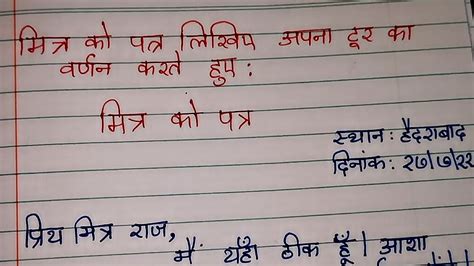 मित्र को पत्र लिखिए अपना टूर का
वर्णन करते हुए :
मित्र को पत्र
स्थान : हैदराबाद
दिनांक : २७/७/२२
प्रिय मित्र राज,
मैं यहाँ ठीक हूँ। आशा